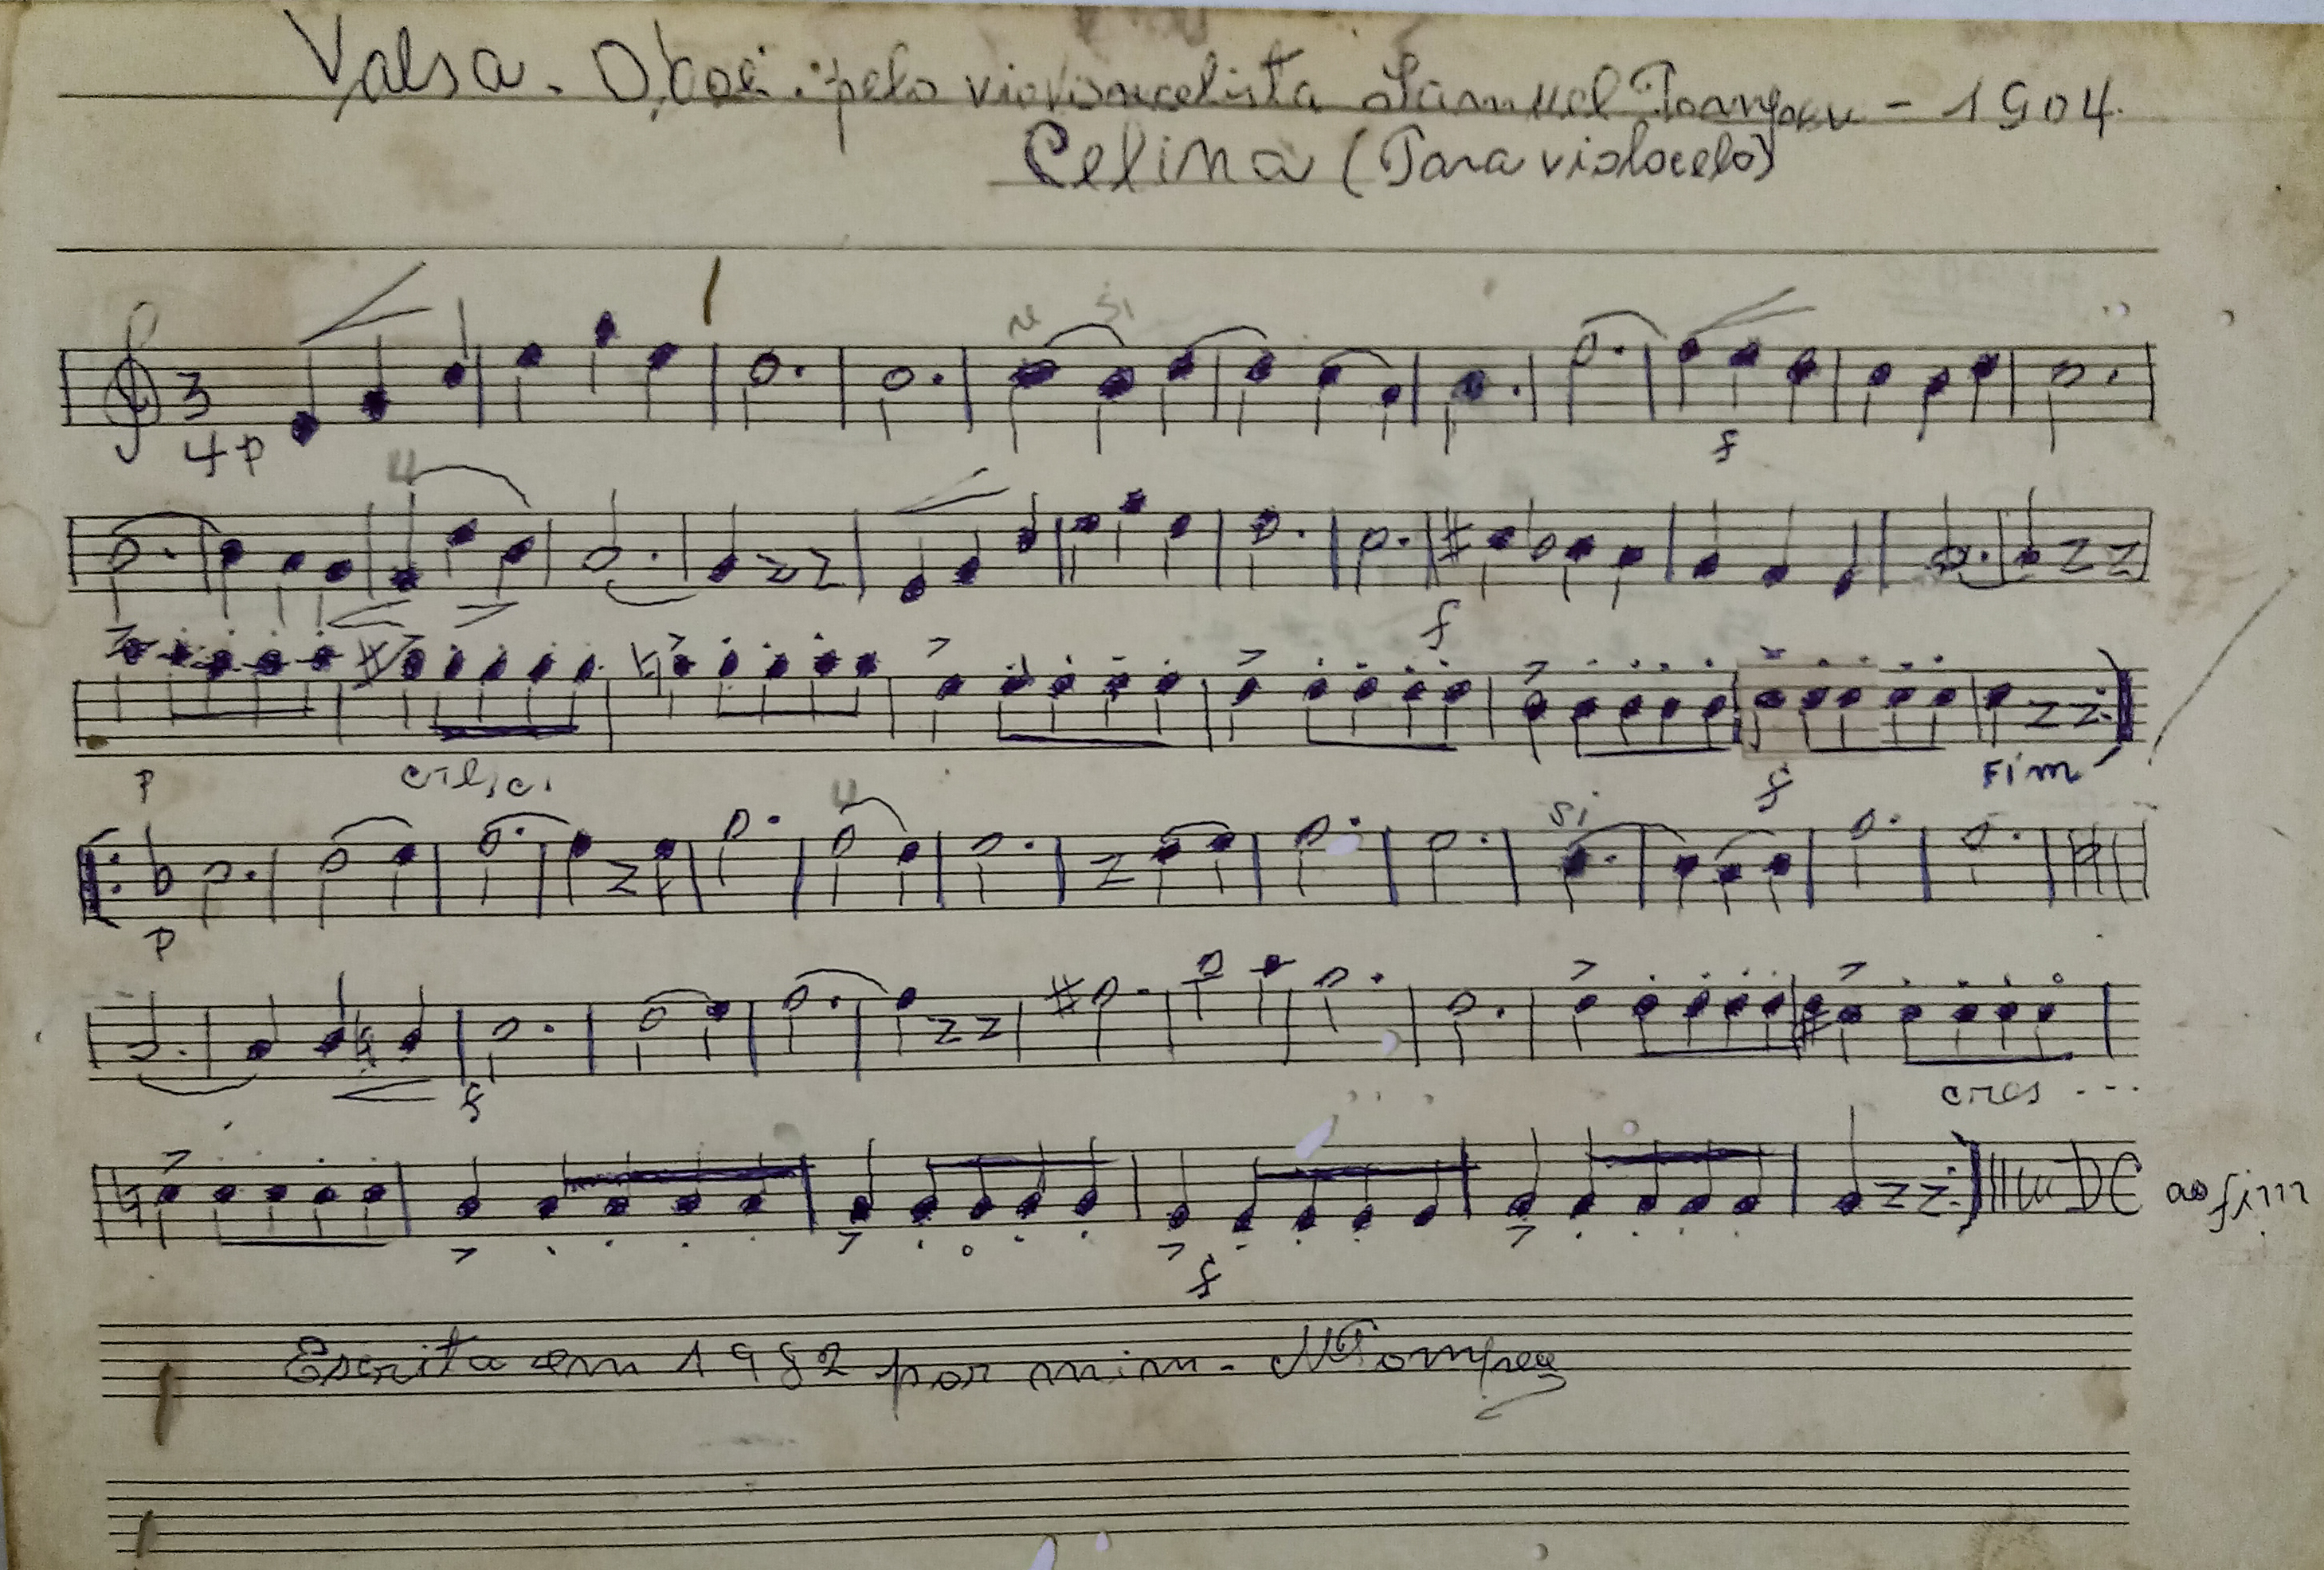 Valsa. pelo violoncelista Samuel Pompeu - 1904.
Celina (Para violocelo)
si
3
4 P
f
4
f
P
cresc.
f
Fim
4
si
P
f
cres...
DC ao fim
f
Escrita em 1982 por mim. MPompeu